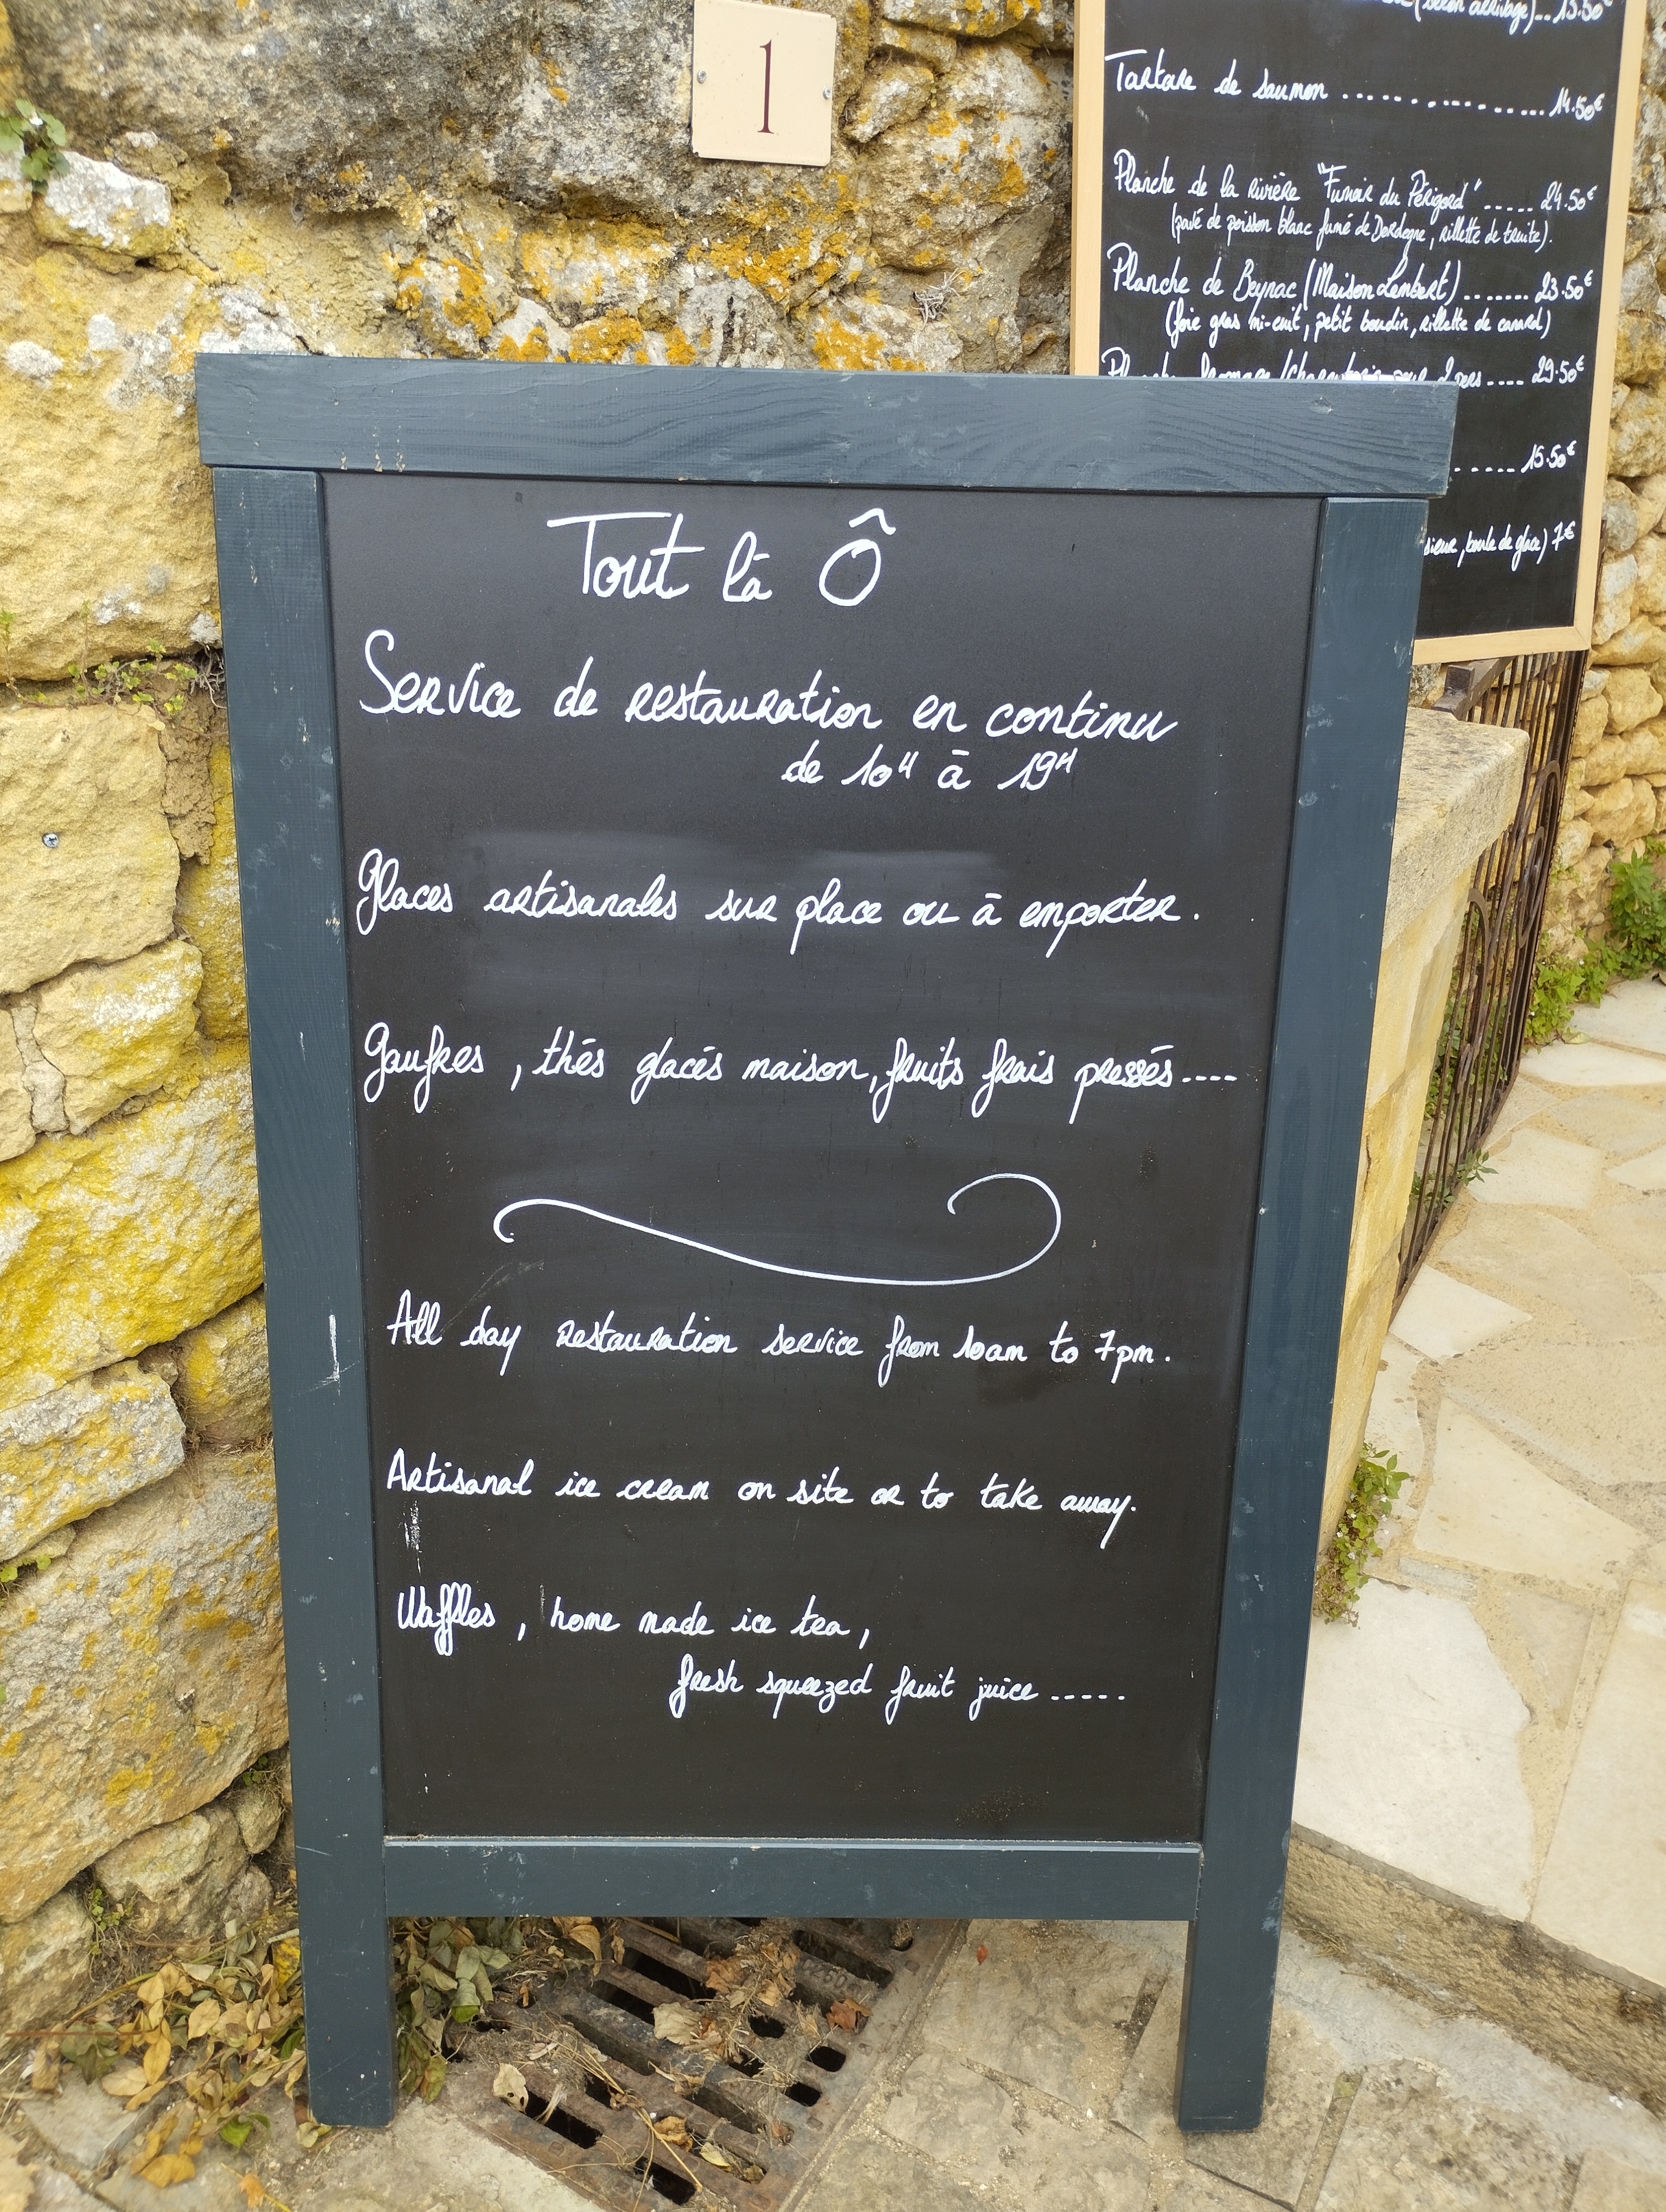 1
(selon arrivage)..15.50€
Tartare de saumon ................14.50€
Planche de la rivière "Fumoir du Périgord" ......24.50€
(pavé de poisson blanc fumé de Dordogne, rillette de truite).
Planche de Beynac (Maison Lembert) .......23.50€
(foie gras mi-cuit, petit boudin, rillette de canard)
2 pers .... 29.50€
..... 15.50€
, boule de glace) 7€
Tout là Ô
Service de restauration en continu
de 10H à 19H
Glaces artisanales sur place ou à emporter.
Gaufres , thés glacés maison, fruits frais pressés ....
All day restauration service from 10am to 7pm.
Artisanal ice cream on site or to take away.
Waffles , home made ice tea,
fresh squeezed fruit juice .....